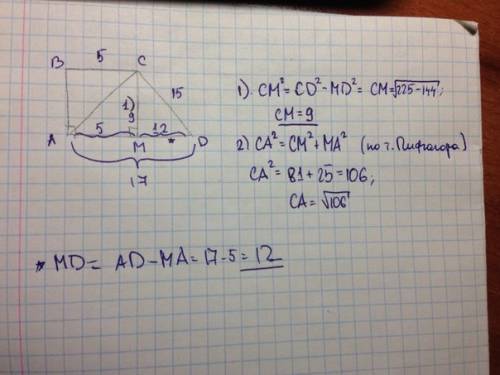 5
B C
15
1)
9
A 5 M 12 * D
17
1). CM² = CD² - MD² = CM=√225-144;
CM = 9
2) CA² = CM² + MA² (по т. Пифагора)
CA² = 81 + 25 = 106;
CA = √106
* MD = AD - MA = 17 - 5 = 12